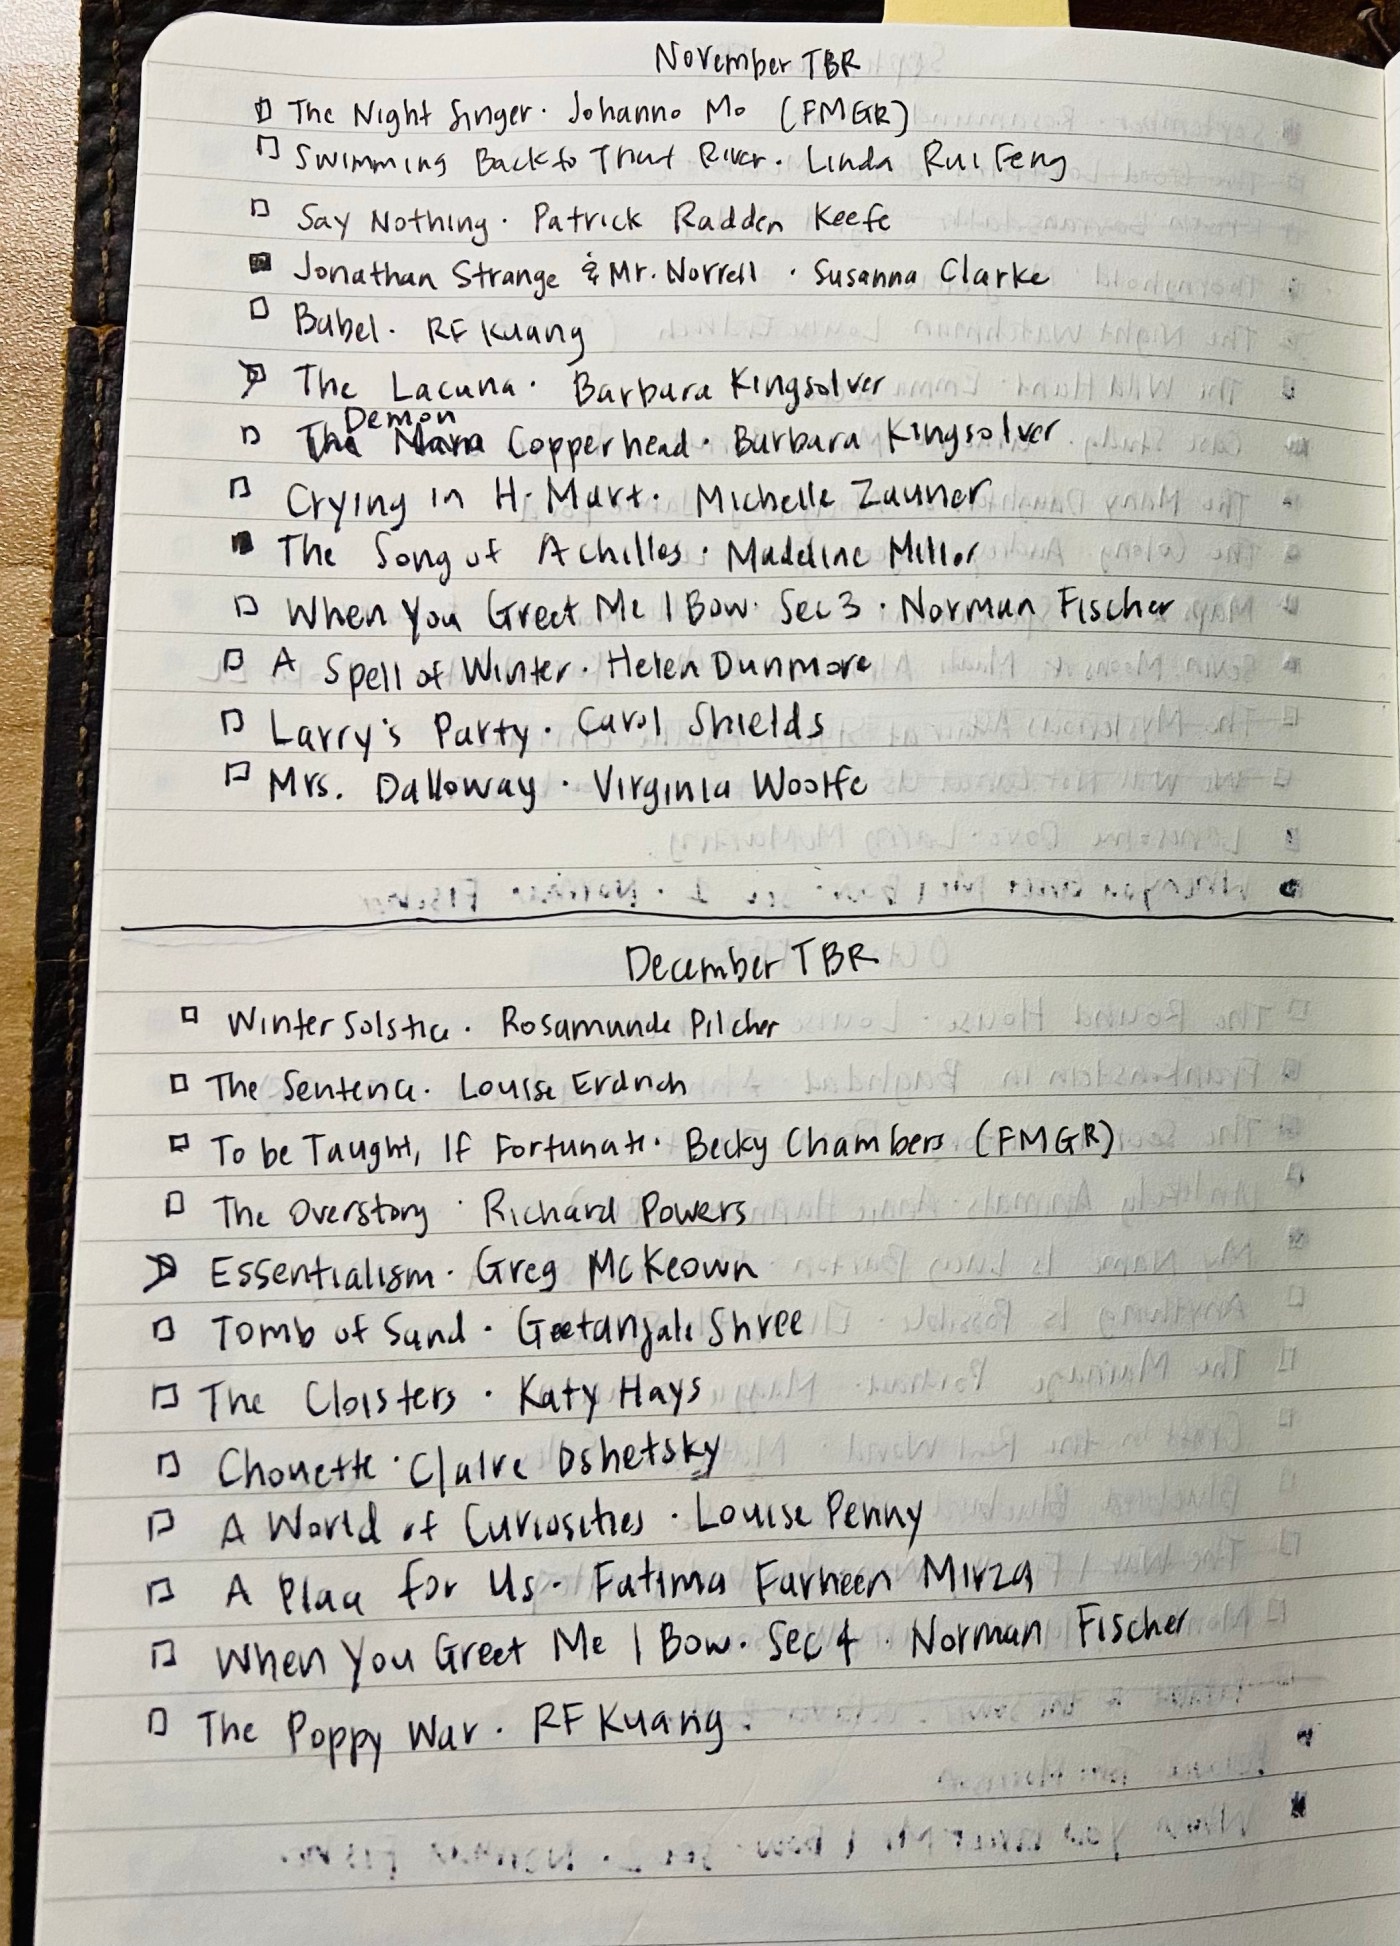 November TBR
The Night Singer · Johanno Mo (FMGR)
Swimming Back to That River · Linda Rui Feng
Say Nothing · Patrick Radden Keefe
Jonathan Strange & Mr. Norrell · Susanna Clarke
Babel · RF Kuang
The Lacuna · Barbara Kingsolver
Demon
The Copperhead · Barbara Kingsolver
Crying in H·Mart · Michelle Zauner
The Song of Achilles · Madeline Miller
When You Greet Me I Bow · Sec 3 · Norman Fischer
A Spell of Winter · Helen Dunmore
Larry's Party · Carol Shields
Mrs. Dalloway · Virginia Woolfe
December TBR
Winter Solstice · Rosamunde Pilcher
The Sentence · Louise Erdrich
To be Taught, If Fortunate · Becky Chambers (FMGR)
The Overstory · Richard Powers
Essentialism · Greg McKeown
Tomb of Sand · Geetanjali Shree
The Cloisters · Katy Hays
Chouette · Claire Oshetsky
A World of Curiosities · Louise Penny
A Place for Us · Fatima Farheen Mirza
When You Greet Me I Bow · Sec 4 · Norman Fischer
The Poppy War · RF Kuang.